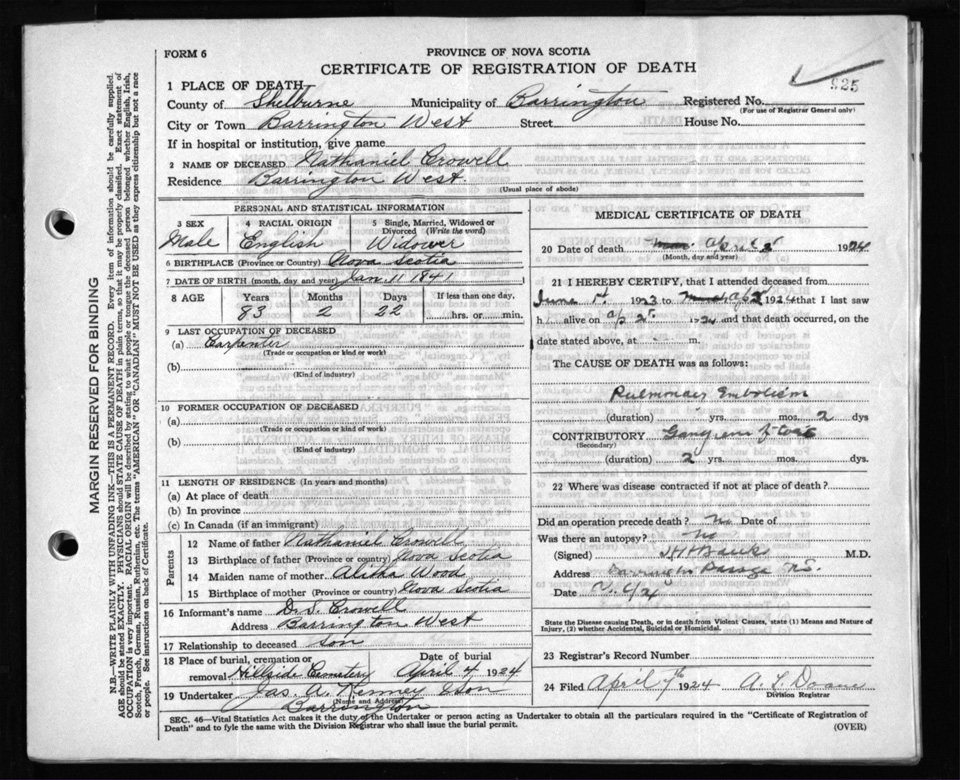 FORM 6
PROVINCE OF NOVA SCOTIA
CERTIFICATE OF REGISTRATION OF DEATH
925
1 PLACE OF DEATH
County of Shelburne Municipality of Barrington Registered No.
(For use of Registrar General only)
City or Town Barrington West Street House No.
If in hospital or institution, give name
2 NAME OF DECEASED Nathaniel Crowell
Residence Barrington West.
(Usual place of abode)
PERSONAL AND STATISTICAL INFORMATION
3 SEX 4 RACIAL ORIGIN 5 Single, Married, Widowed or Divorced (Write the word)
Male English Widower
6 BIRTHPLACE (Province or Country) Nova Scotia
7 DATE OF BIRTH (month, day and year) Jan 11 1841
8 AGE Years Months Days If less than one day,
83 2 22 hrs. or min.
9 LAST OCCUPATION OF DECEASED
(a) Carpenter
(Trade or occupation or kind or work)
(b)
(Kind of industry)
10 FORMER OCCUPATION OF DECEASED
(a)
(Trade or occupation or kind of work)
(b)
(Kind of industry)
11 LENGTH OF RESIDENCE (In years and months)
(a) At place of death
(b) In province
(c) In Canada (if an immigrant)
Parents
12 Name of father Nathaniel Crowell
13 Birthplace of father (Province or country) Nova Scotia
14 Maiden name of mother Wood
15 Birthplace of mother (Province or country) Nova Scotia
16 Informant's name Crowell
Address Barrington West
17 Relationship to deceased son
18 Place of burial, cremation or removal Hillside Cemetery Date of burial April 4 1924
19 Undertaker Jas. A. Kenney & Son
(Name and Address)
Barrington
MEDICAL CERTIFICATE OF DEATH
20 Date of death April 2 1924
(Month, day and year)
21 I HEREBY CERTIFY, that I attended deceased from
June 1923 to 1924 that I last saw
h alive on ap 2 1924 and that death occurred, on the
date stated above, at m.
The CAUSE OF DEATH was as follows:
Pulmonary Embolism
(duration) yrs. mos. 2 dys
CONTRIBUTORY
(Secondary)
(duration) 2 yrs. mos. dys.
22 Where was disease contracted if not at place of death?
Did an operation precede death? No Date of
Was there an autopsy? No
(Signed) M.D.
Address Barrington Passage N.S.
Date
State the Disease causing Death, or in death from Violent Causes, state (1) Means and Nature of
Injury, (2) whether Accidental, Suicidal or Homicidal.
23 Registrar's Record Number
24 Filed April 7th 1924 Doane
Division Registrar
SEC. 46—Vital Statistics Act makes it the duty of the Undertaker or person acting as Undertaker to obtain all the particulars required in the "Certificate of Registration of
Death" and to fyle the same with the Division Registrar who shall issue the burial permit.
(OVER)
MARGIN RESERVED FOR BINDING
N.B.—WRITE PLAINLY WITH UNFADING INK—THIS IS A PERMANENT RECORD. Every item of information should be carefully supplied.
AGE should be stated EXACTLY. PHYSICIANS should STATE CAUSE OF DEATH in plain terms, so that it may be properly classified. Exact statement of
OCCUPATION is very important. RACIAL ORIGIN will be described by stating to what people or tongue the deceased person belonged, whether English, Irish,
Scotch, French, German, Russian, Ruthenian, etc. The terms "AMERICAN" OR "CANADIAN" MUST NOT BE USED as they express citizenship but not a race
or people. See instructions on back of Certificate.